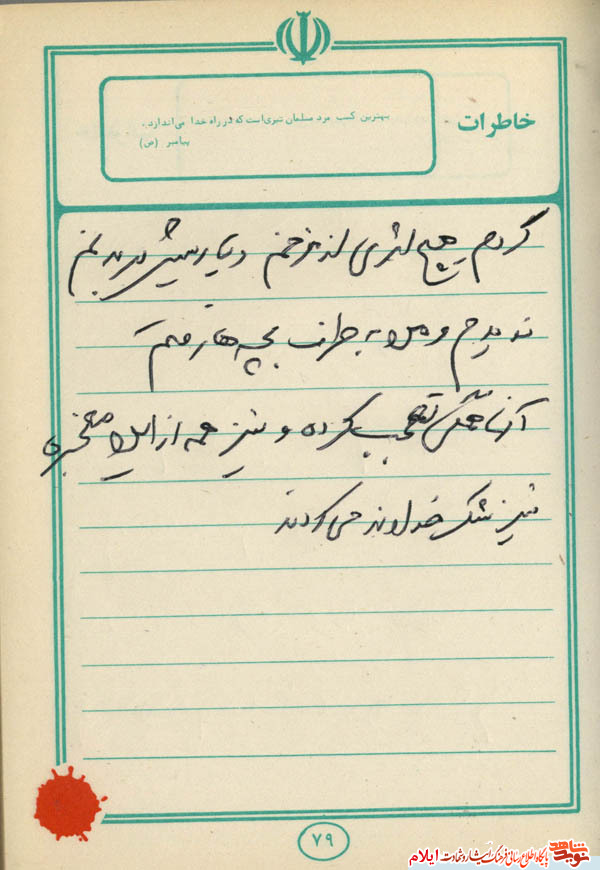 خاطرات -
بهترین کسب مرد مسلمان تیری است که در راه خدا می اندازد.
پیامبر (ص)
کردم هیچ اثری از زخم و یا بریدگی در بدنم
ندیدم و من به طرف بچه ها رفتم
آنها همگی تعجب کرده و نیز همه از این معجزه
نیز شکر خداوند می کردند
۷۹
نوید شاهد پایگاه اطلاع رسانی فرهنگ ایثار و شهادت ایلام